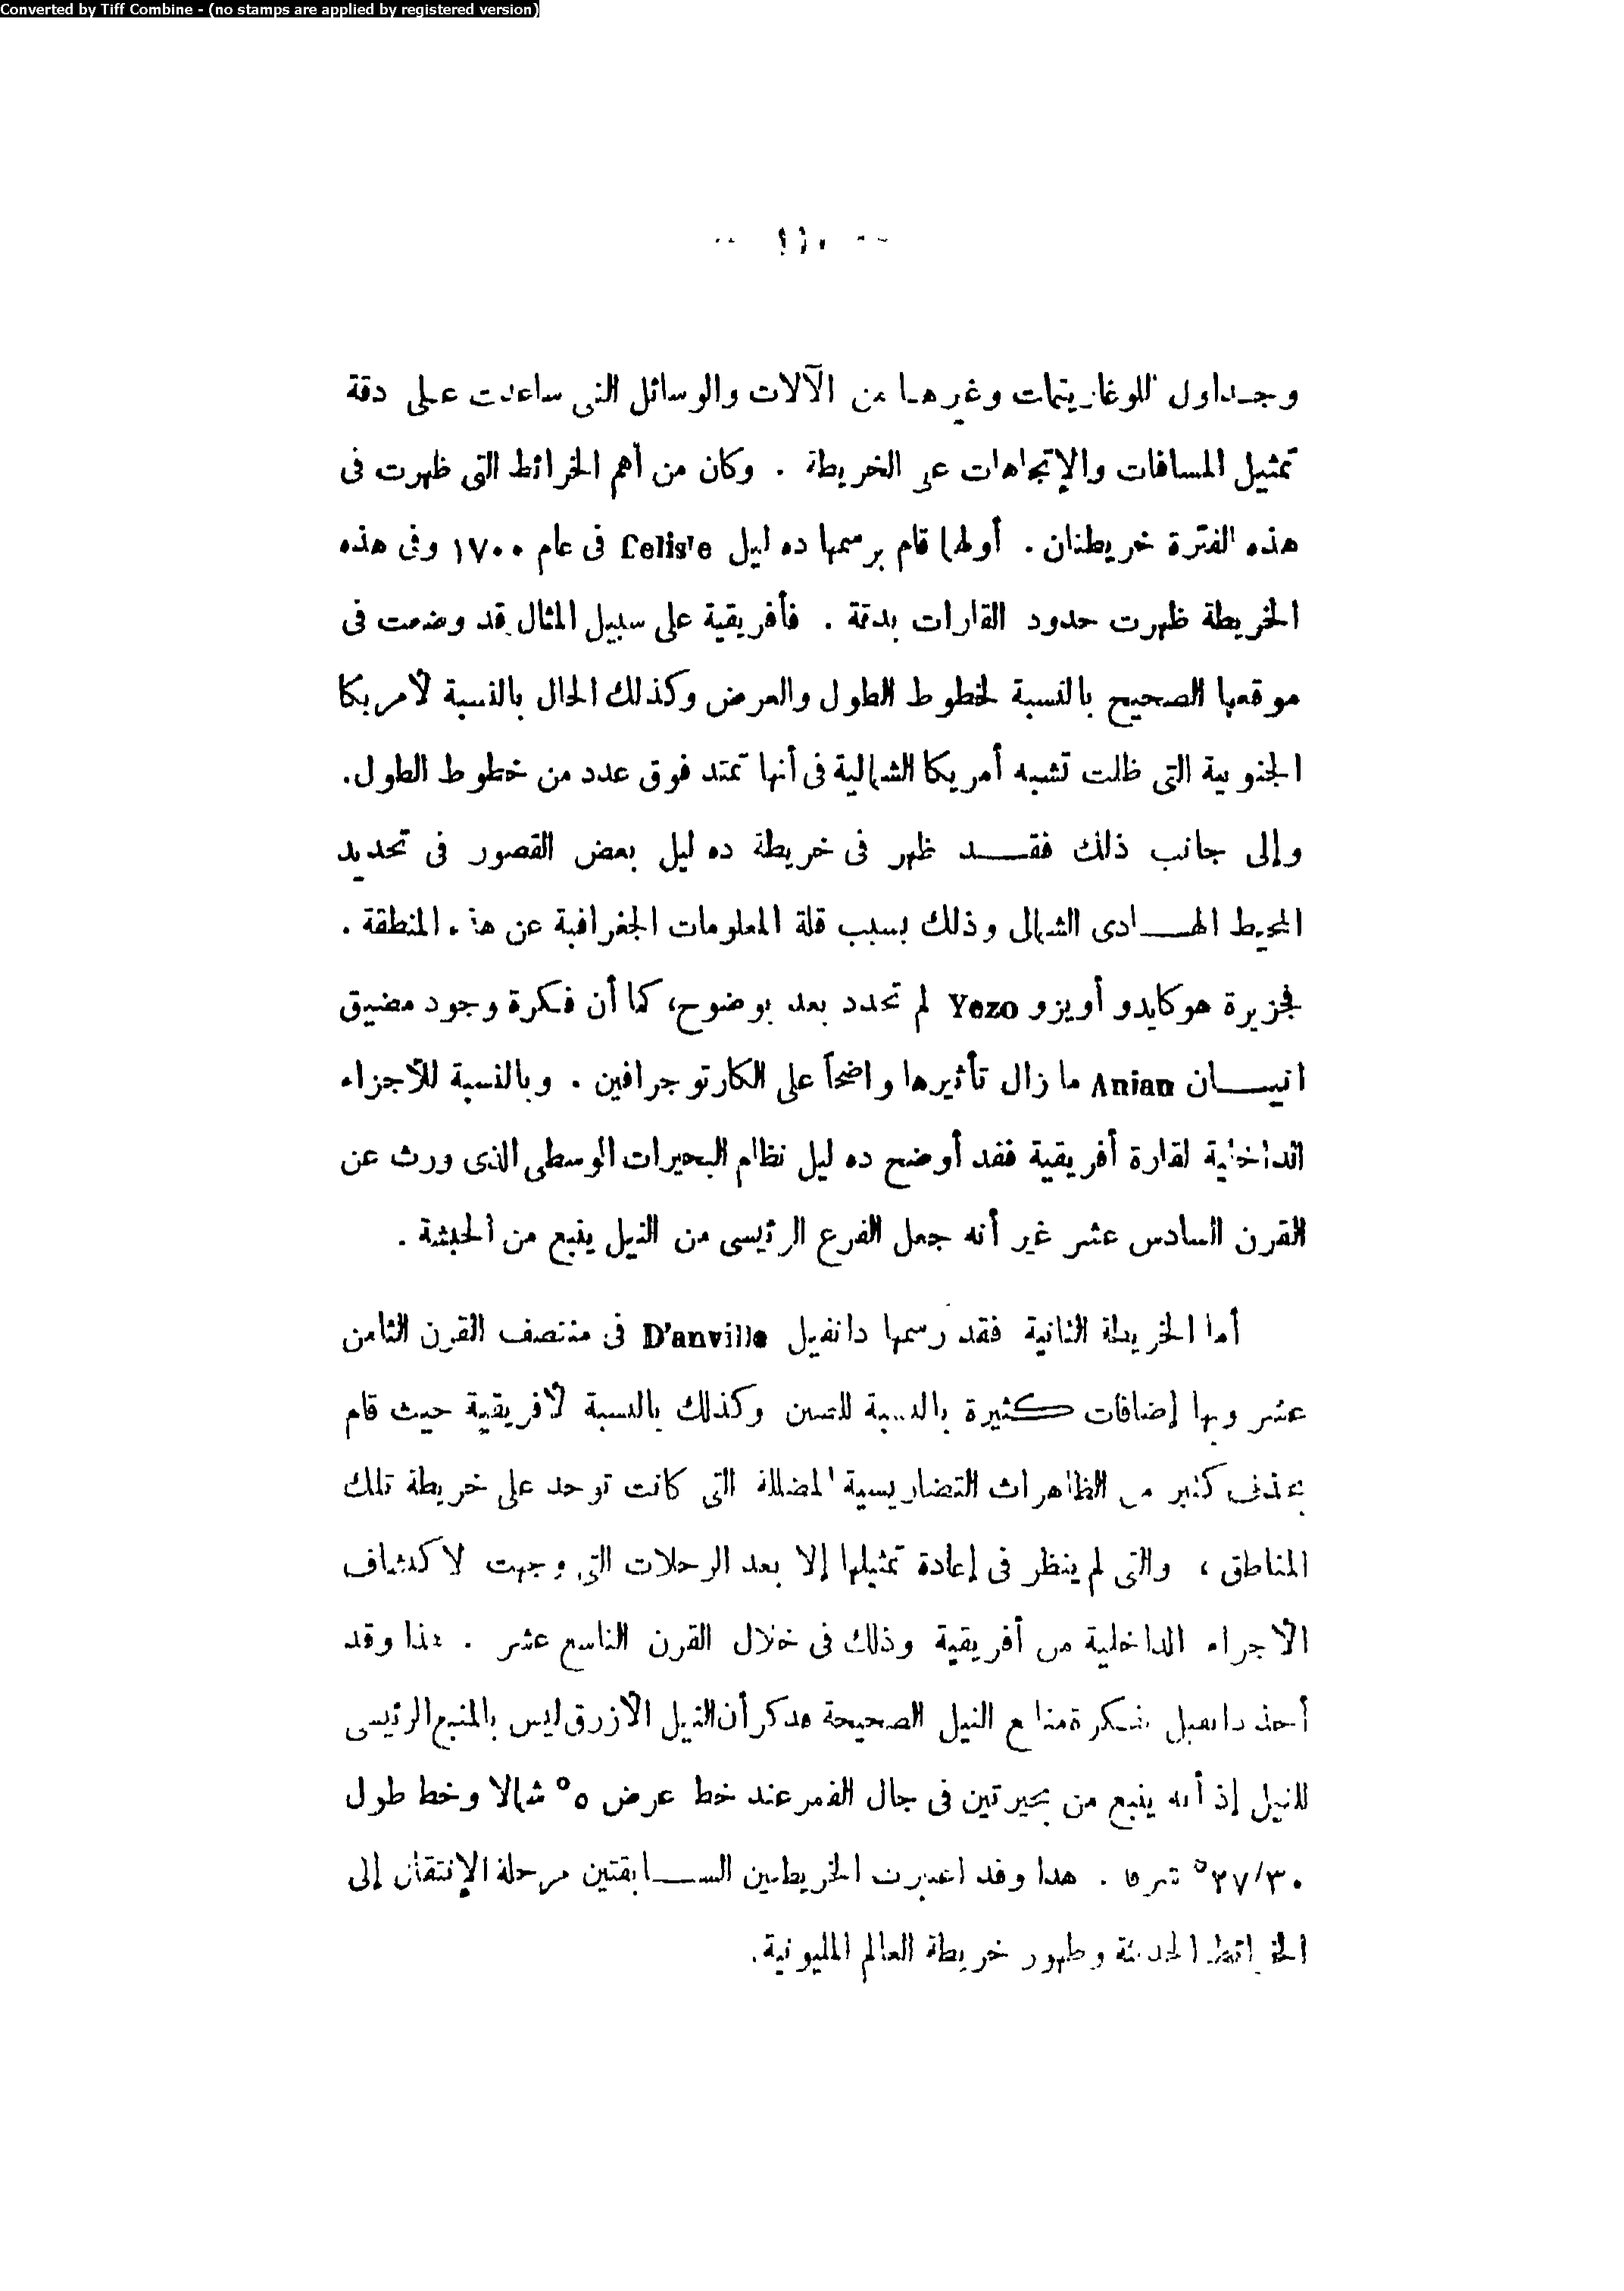 Converted by Tiff Combine - (no stamps are applied by registered version)
وجداول اللوغاريتمات وغيرها من الآلات والوسائل التى ساعدت على دقة
تمثيل المسافات والإتجاهات على الخريطة . وكان من أهم الخرائط التى ظهرت فى
هذه الفترة خريطتان . أولها قام برسمها ده ليل فى عام ١٧٠٠ وفى هذه
الخريطة ظهرت حدود القارات بدقة . فأفريقية على سبيل المثال قد وضعت فى
موقعها الصحيح بالنسبة لخطوط الطول والعرض وكذلك الحال بالنسبة لأمريكا
الجنوبية التى ظلت تشبه أمريكا الشمالية فى أنها تمتد فوق عدد من خطوط الطول.
وإلى جانب ذلك فقد ظهر فى خريطة ده ليل بعض القصور فى تحديد
المحيط الهادى الشمالى وذلك بسبب قلة المعلومات الجغرافية عن هذه المنطقة .
فجزيرة هوكايدو أويزو Yezo لم تحدد بعد بوضوح، كما أن فكرة وجود مضيق
انيان Anian ما زال تأثيرها واضحاً على الكارتوجرافين . وبالنسبة للأجزاء
الداخلية لقارة أفريقية فقد أوضح ده ليل نظام البحيرات الوسطى الذى ورث عن
القرن السادس عشر غير أنه جعل الفرع الرئيسى من النيل ينبع من الحبشة .
أما الخريطة الثانية فقد رسمها دانفيل D'anville فى منتصف القرن الثامن
عشر وبها إضافات كثيرة بالنسبة للصين وكذلك بالنسبة لأفريقية حيث قام
بحذف كثير من الظاهرات التضاريسية المضللة التى كانت توجد على خريطة تلك
المناطق ، والتى لم ينظر فى إعادة تمثيلها إلا بعد الرحلات التى وجهت لاكتشاف
الأجزاء الداخلية من أفريقية وذلك فى خلال القرن التاسع عشر . هذا وقد
أخذ دانفيل بفكرة منابع النيل الصحيحة فذكر أن النيل الأزرق ليس بالمنبع الرئيسى
للنيل إذ أنه ينبع من بحيرتين فى جبال القمر عند خط عرض ٥° شمالا وخط طول
٣٠/٢٧° شرقا . هذا وقد اعتبرت الخريطتين السابقتين مرحلة الإنتقال إلى
الخرائط الحديثة وظهور خريطة العالم المليونية.